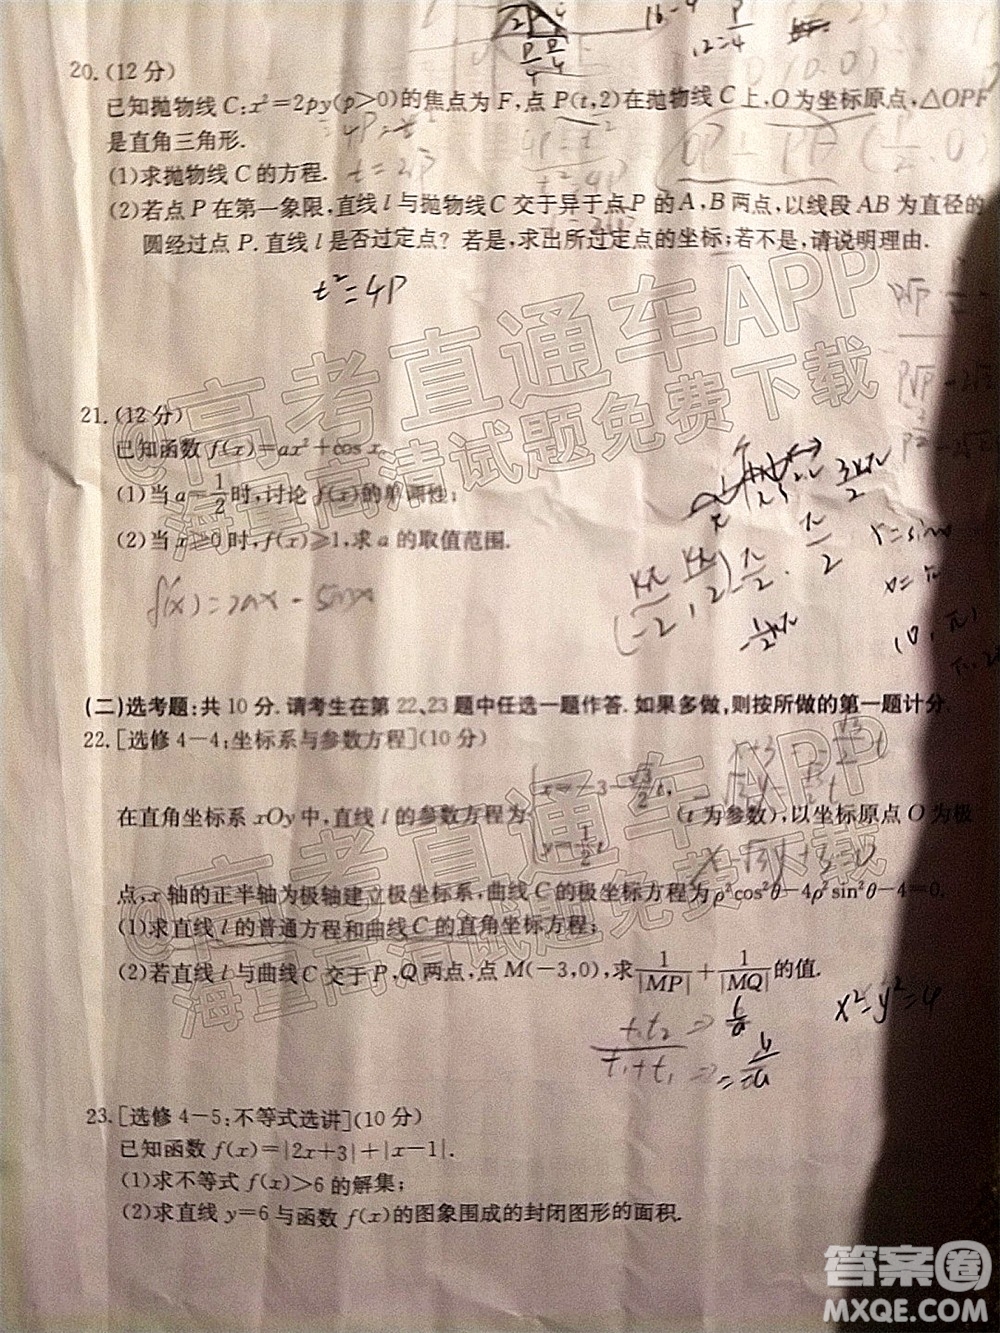 16-4
12=4
20.(12分)
已知抛物线C:x²=2py(p>0)的焦点为F,点P(t,2)在抛物线C上,O为坐标原点,△OPF
是直角三角形.
(1)求抛物线C的方程.
(2)若点P在第一象限,直线l与抛物线C交于异于点P的A,B两点,以线段AB为直径的
圆经过点P.直线l是否过定点?若是,求出所过定点的坐标;若不是,请说明理由.
t²=4P
21.(12分)
已知函数f(x)=ax²+cos x.
(1)当a=1/2时,讨论f(x)的单调性;
(2)当x≥0时,f(x)≥1,求a的取值范围.
f'(x)=2ax-sinx
(二)选考题:共10分.请考生在第22、23题中任选一题作答.如果多做,则按所做的第一题计分.
22.[选修4-4:坐标系与参数方程](10分)
在直角坐标系xOy中,直线l的参数方程为{x=-3-√3/2 t, y=-1/2 t (t为参数),以坐标原点O为极
点,x轴的正半轴为极轴建立极坐标系,曲线C的极坐标方程为ρ²cos²θ-4ρ²sin²θ-4=0.
(1)求直线l的普通方程和曲线C的直角坐标方程;
(2)若直线l与曲线C交于P,Q两点,点M(-3,0),求1/|MP|+1/|MQ|的值.
x²=y²=4
23.[选修4-5:不等式选讲](10分)
已知函数f(x)=|2x+3|+|x-1|.
(1)求不等式f(x)>6的解集;
(2)求直线y=6与函数f(x)的图象围成的封闭图形的面积.
©高考直通车APP
海量高清试题免费下载
©高考直通车APP
海量高清试题免费下载
答案圈
MXQE.COM